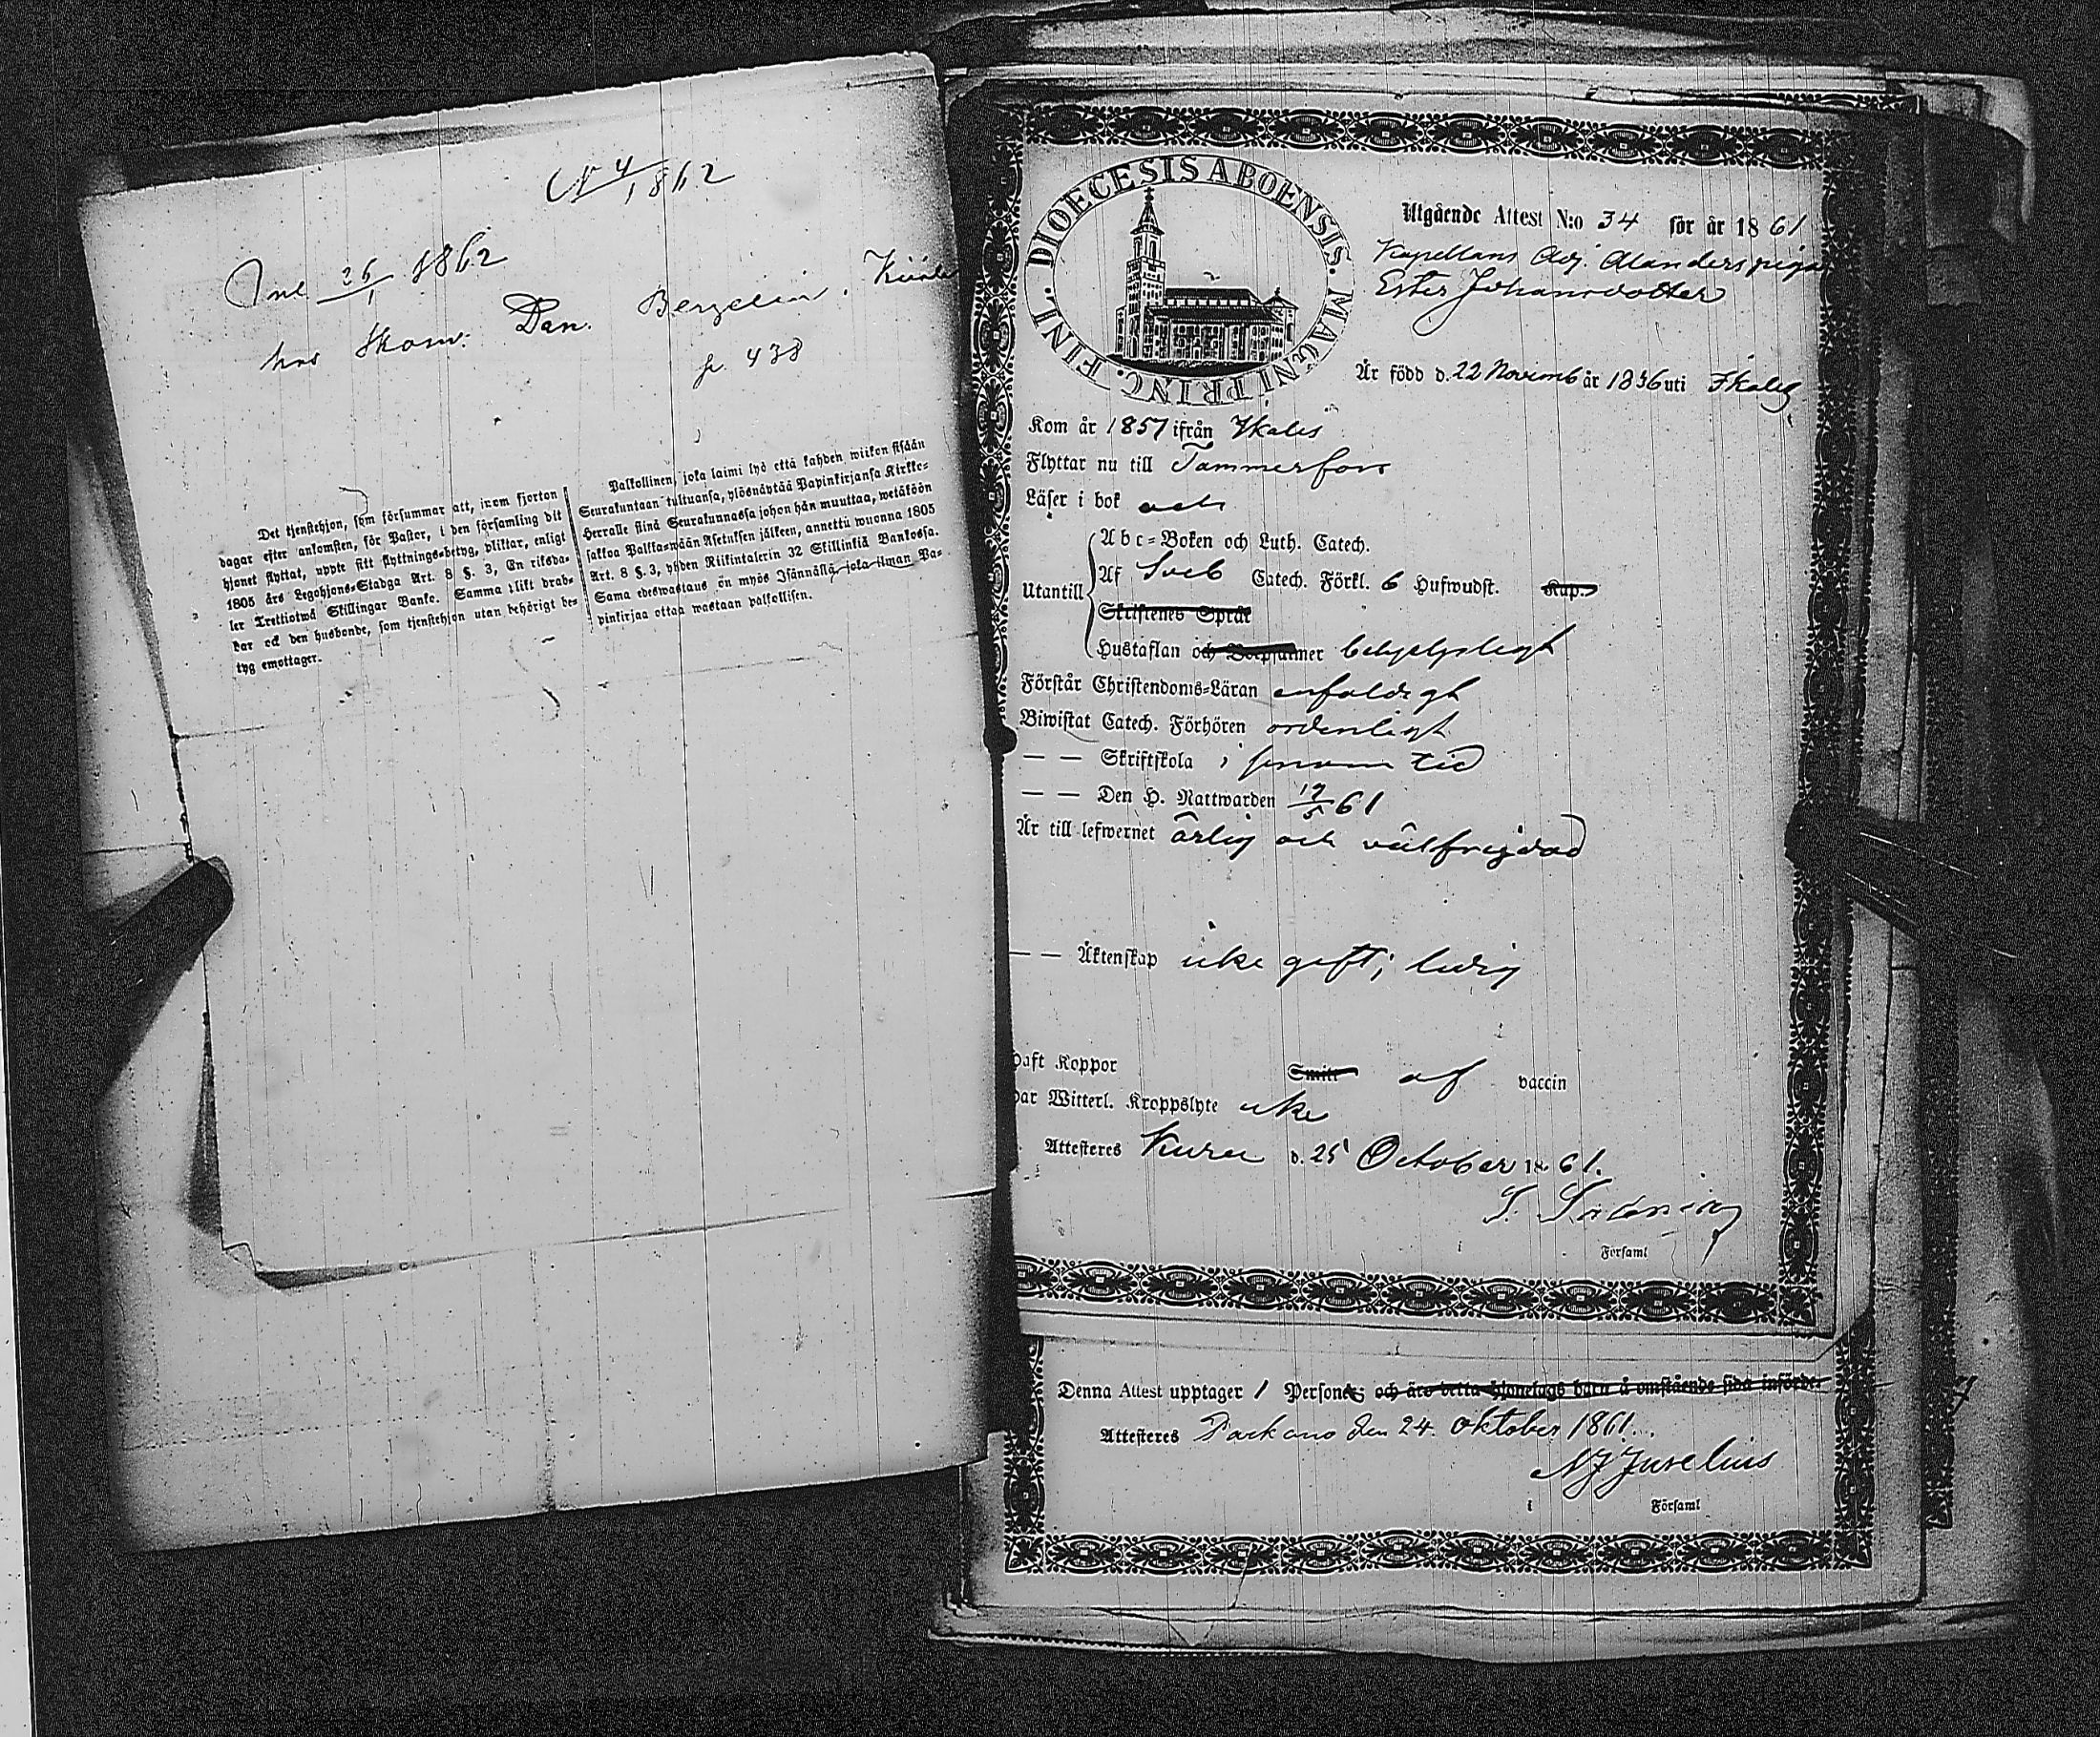 N 4/1862
Anl 26/1 1862
hos Skom: Dan. Bergelin.
p. 438
Det tjenstehjon, som försummar att, inom fjorton
dagar efter ankomsten, för Pastor, i den församling dit
hjonet flyttat, uppte sitt flyttnings-betyg, pliktar, enligt
1805 års Legohjons-Stadga Art. 8 §. 3, En riksda-
ler Trettiotwå Skillingar Banko. Samma plikt drab-
bar ock den husbonde, som tjenstehjon utan behörigt be-
tyg emottager.
Palkollinen, joka laimi lyö että kahden wiikon sisään
Seurakuntaan tultuansa, ylösnäytää Papinkirjansa Kirkko-
Herralle siinä Seurakunnassa johon hän muuttaa, wetäköön
sakkoa Palkka-wään Asetuksen jälkeen, annettu wuonna 1805
Art. 8 §. 3, yhden Riikintalerin 32 Skillinkiä Bankossa.
Sama edeswastaus on myös Isännällä, joka ilman Pa-
pinkirjaa ottaa wastaan palkollisen.
DIOECESIS ABOENSIS. MAGNI PRINC. FINL.
Utgående Attest N:o 34 för år 1861
Kapellans Adj. Alanders pigan
Ester Johansdotter
Är född d. 22 Novemb år 1836 uti Ikalis
Kom år 1857 ifrån Ikalis
Flyttar nu till Tammerfors
Läser i bok och
Abc-Boken och Luth. Catech.
Utantill Af Sveb Catech. Förkl. 6 Hufwudst. Kap.
Skriftenes Språk
Hustaflan och Botpsalmer behjelpligt
Förstår Christendoms-Läran enfaldigt
Biwistat Catech. Förhören ordentligt
— — Skriftskola i sinom tid
— — Den H. Nattwarden 19/5 61
Är till lefwernet ärlig och välfrejdad
— — Äktenskap icke gift; ledig
Haft Koppor Smitt af vaccin
Har Witterl. Kroppslyte icke
Attesteres Kuru d. 25 October 1861.
Församl
Denna Attest upptager 1 Person och äro detta hjonelags barn å omstående sida införde
Attesteres Parkano den 24. oktober 1861.
NJ Jurelius
i Församl